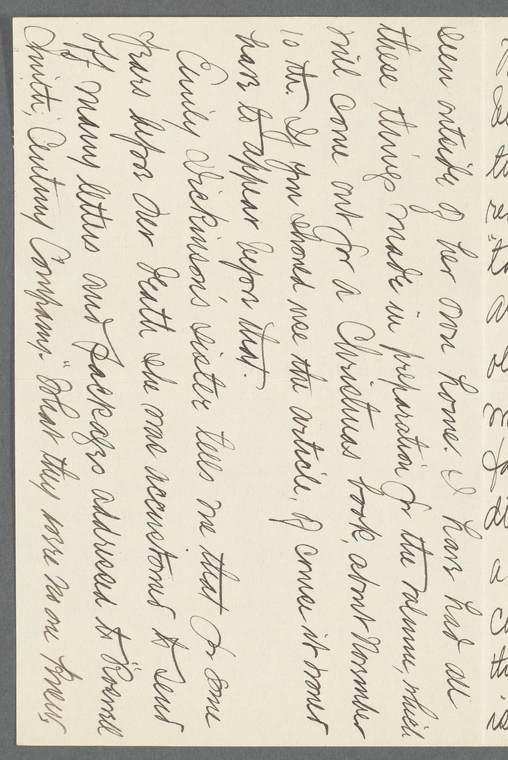 seen outside of her own home. I have had all
these things made in preparation for the volume, which
will come out for a Christmas book, about November
10th. If you should use the article, of course it would
have to appear before that.
Emily Dickinson's sister tells me that for some
years before her death she was accustomed to send
off many letters and packages addressed to "Roswell
Smith, Century Company." What they were no one knows,